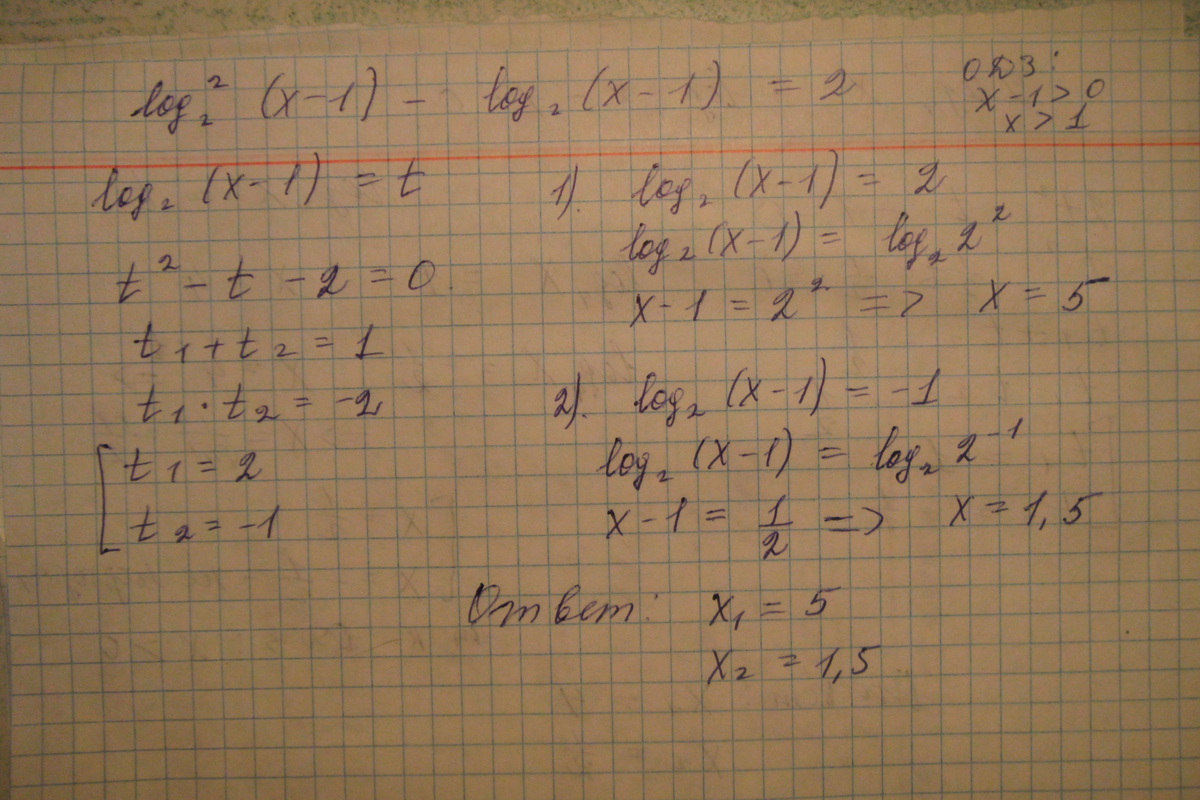 log₂² (x-1) - log₂ (x-1) = 2
ОДЗ:
x-1>0
x>1
log₂ (x-1) = t
t² - t - 2 = 0.
t₁ + t₂ = 1
t₁ · t₂ = -2
[ t₁ = 2
t₂ = -1
1). log₂ (x-1) = 2
log₂ (x-1) = log₂ 2²
x-1 = 2² => x = 5
2). log₂ (x-1) = -1
log₂ (x-1) = log₂ 2⁻¹
x-1 = 1/2 => x = 1,5
Ответ: x₁ = 5
x₂ = 1,5